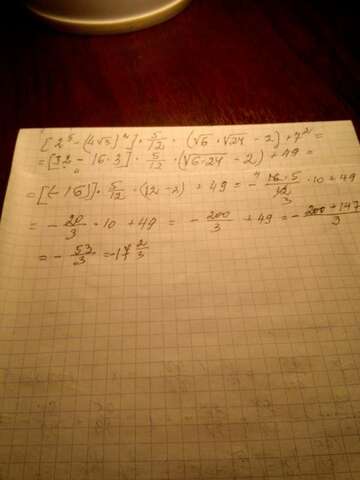 [2⁵-(4√3)²]·5/12·(√6·√24-2)+7²=
=[32-16·3]·5/12·(√6·24-2)+49=
=[(-16)]·5/12·(12-2)+49=-16·5/12·10+49
=-20/3·10+49=-200/3+49=-200+147/3
=-53/3=-17 2/3